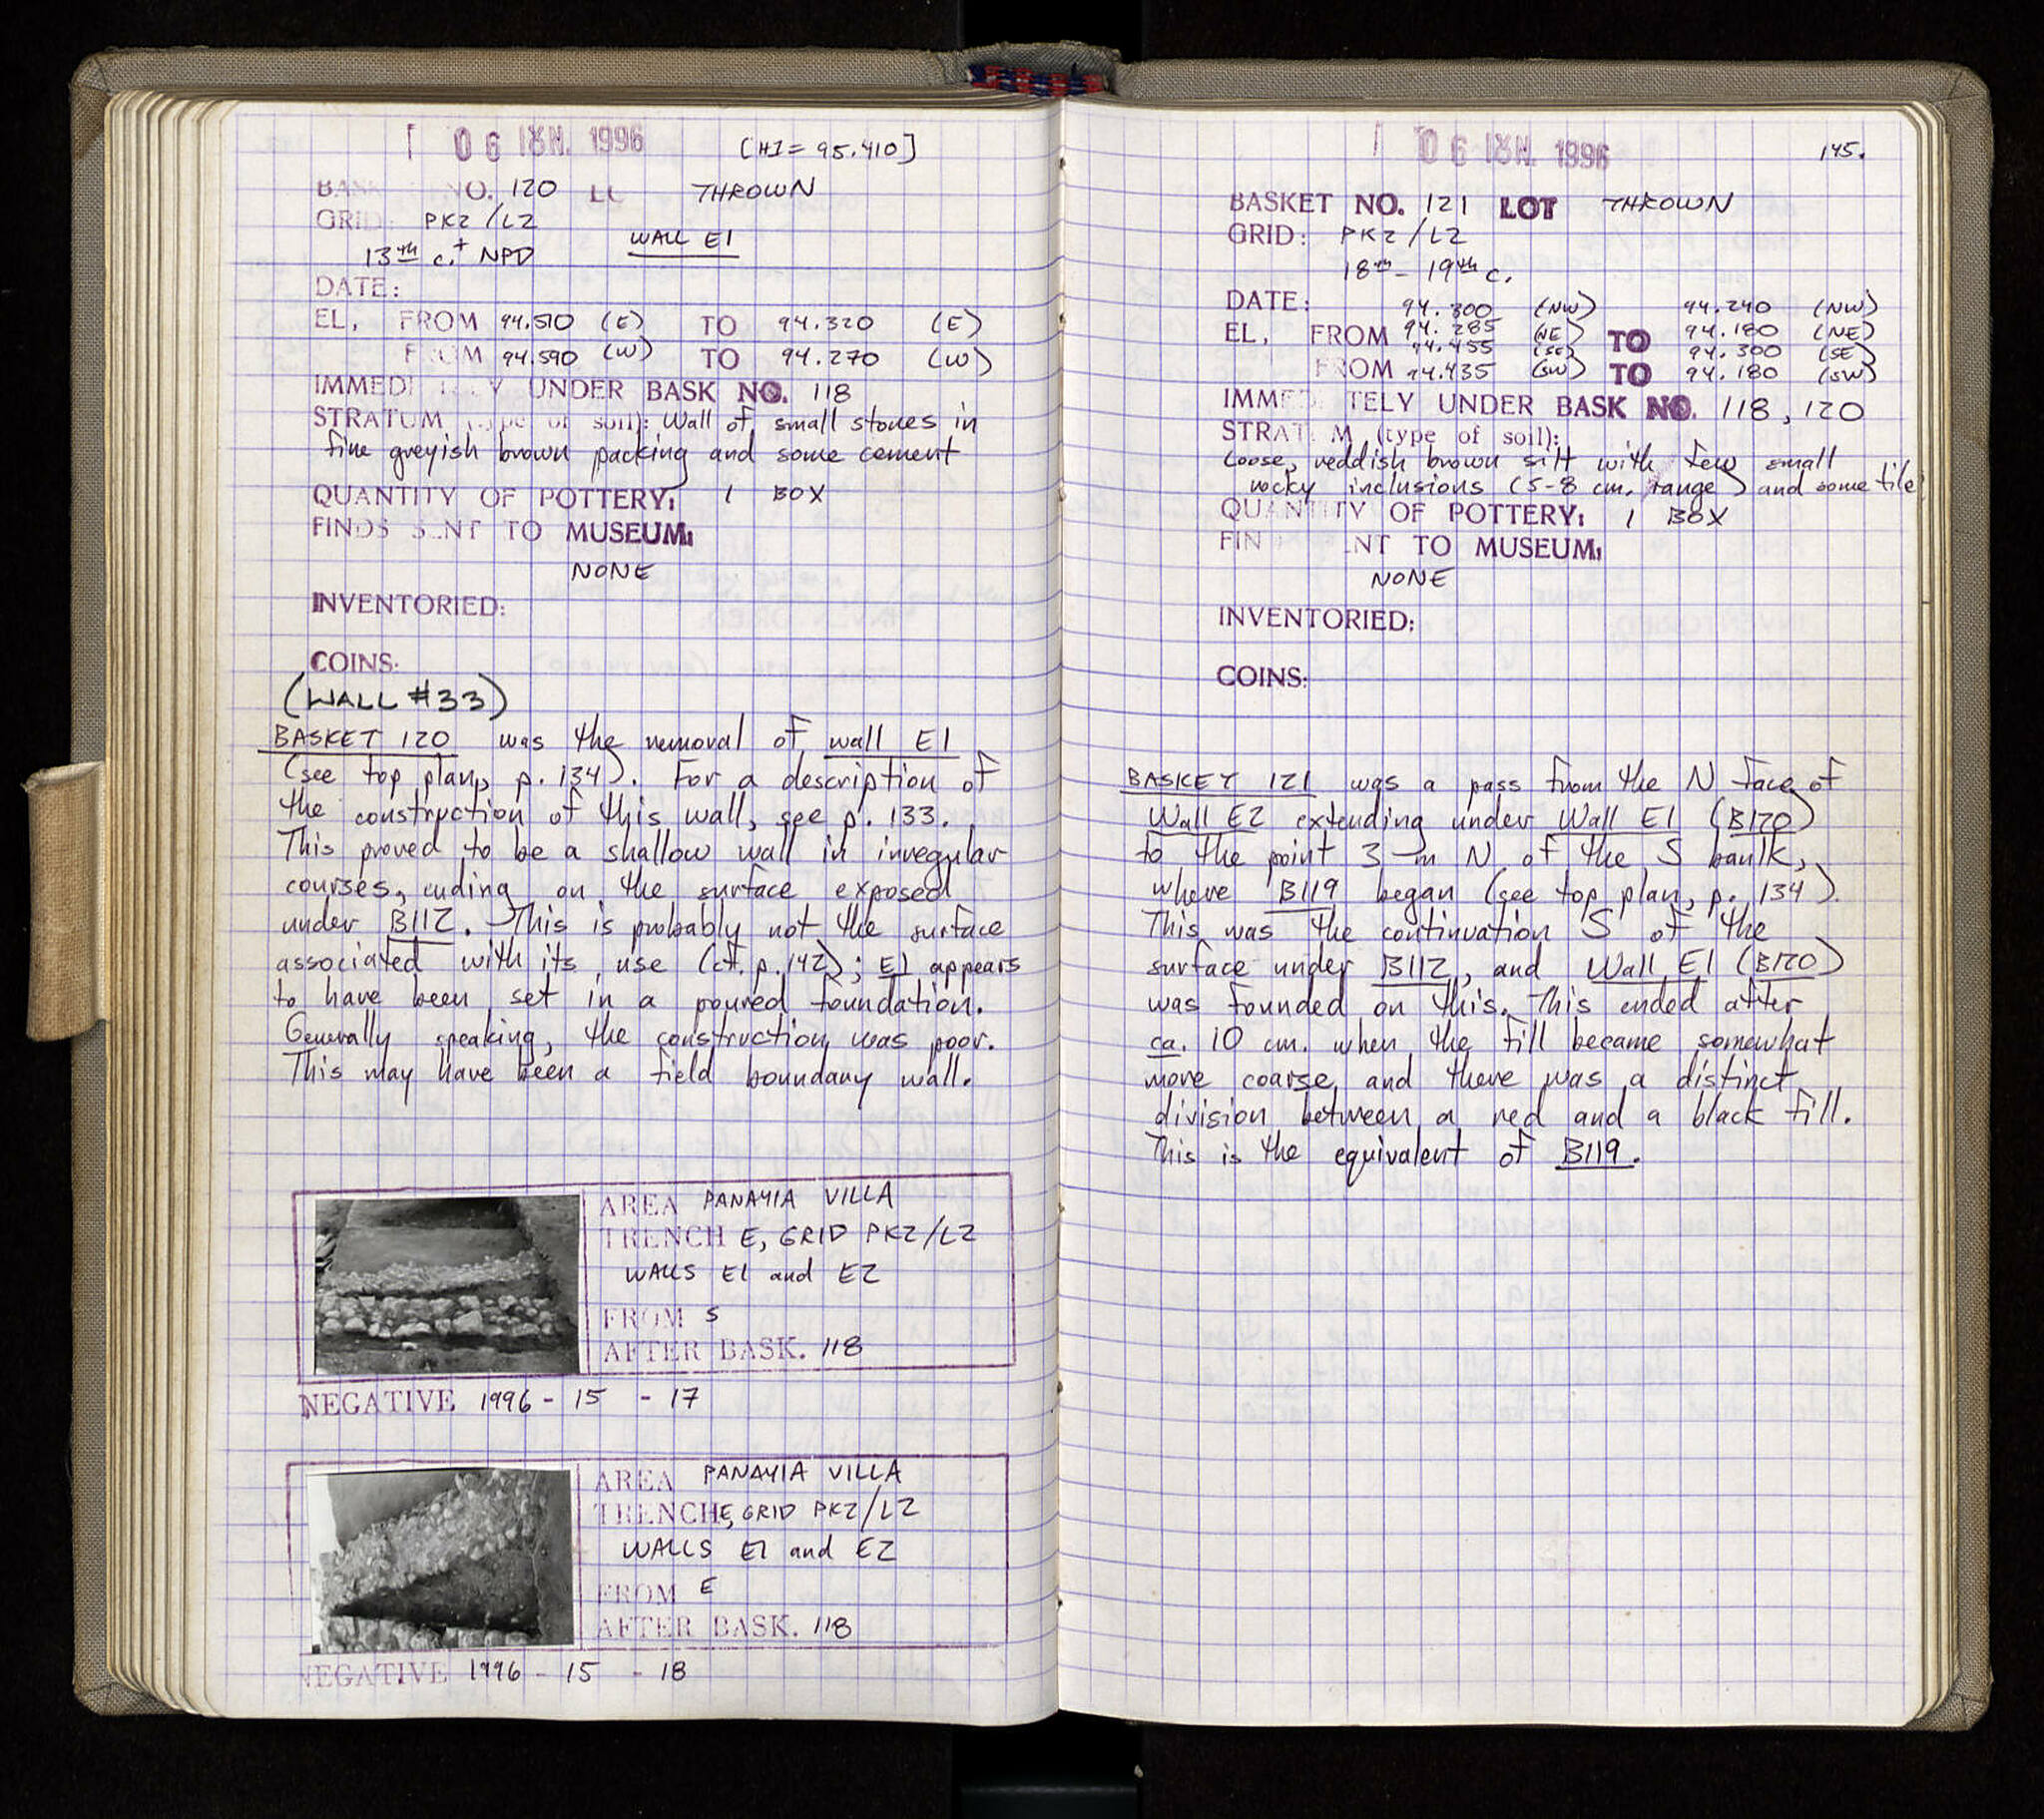 06 IUN. 1996 [HI = 95.410]
BASK NO. 120 LO THROWN
GRID: PK2/L2
WALL E1
13th c.+ NPD
DATE:
EL, FROM 94.510 (E) TO 94.320 (E)
FROM 94.590 (W) TO 94.270 (W)
IMMEDI LY UNDER BASK NO. 118
STRATUM (type of soil): Wall of small stones in
fine greyish brown packing and some cement
QUANTITY OF POTTERY: 1 BOX
FINDS SENT TO MUSEUM:
NONE
INVENTORIED:
COINS:
(WALL #33)
BASKET 120 was the removal of wall E1
(see top plan, p. 134). For a description of
the construction of this wall, see p. 133.
This proved to be a shallow wall in irregular
courses, ending on the surface exposed
under B112. This is probably not the surface
associated with its use (cf. p. 142); E1 appears
to have been set in a poured foundation.
Generally speaking, the construction was poor.
This may have been a field boundary wall.
AREA PANAYIA VILLA
TRENCH E, GRID PK2/L2
WALLS E1 and E2
FROM S
AFTER BASK. 118
NEGATIVE 1996 - 15 - 17
AREA PANAYIA VILLA
TRENCH E, GRID PK2/L2
WALLS E1 and E2
FROM E
AFTER BASK. 118
NEGATIVE 1996 - 15 - 18
06 IUN. 1996 145.
BASKET NO. 121 LOT THROWN
GRID: PK2/L2
18th - 19th c.
DATE: 94.300 (NW) 94.240 (NW)
EL, FROM 94.285 (NE) TO 94.180 (NE)
94.455 (SE) 94.300 (SE)
FROM 94.435 (SW) TO 94.180 (SW)
IMMED TELY UNDER BASK NO. 118, 120
STRATUM (type of soil):
Loose, reddish brown silt with few small
rocky inclusions (5-8 cm. range) and some tile
QUANTITY OF POTTERY: 1 BOX
FIN ENT TO MUSEUM:
NONE
INVENTORIED:
COINS:
BASKET 121 was a pass from the N face of
Wall E2 extending under Wall E1 (B120)
to the point 3 m N of the S baulk,
where B119 began (see top plan, p. 134).
This was the continuation S of the
surface under B112, and Wall E1 (B120)
was founded on this. This ended after
ca. 10 cm. when the fill became somewhat
more coarse and there was a distinct
division between a red and a black fill.
This is the equivalent of B119.